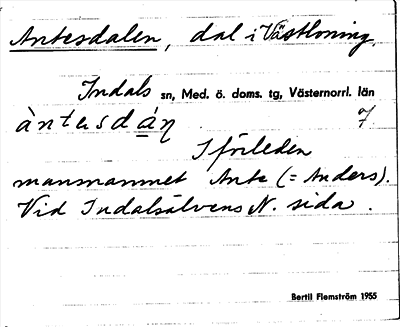 Antesdalen, dal i Västloning,
Indals sn, Med. ö. doms. tg, Västernorrl. län
àntɐsdán 7/7.
I förleden
mansnamnet Ante (= Anders).
Vid Indalsälvens N. sida.
Bertil Flemström 1955